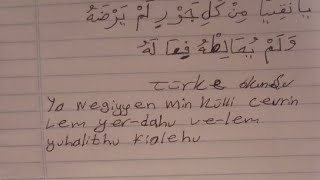 يَا نَقِيًّا مِنْ كُلِّ جَوْرٍ لَمْ يَرْضَهُ
وَلَمْ يُخَالِطْهُ فِعَالَهُ
türkçe okunuşu
Ya negiyyen min külli cevrin
lem yer-dahu ve-lem
yuhalithu fialehu